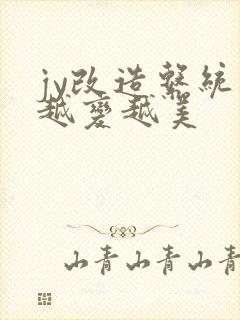 jy改造繫統
越變越美
山青山青山青